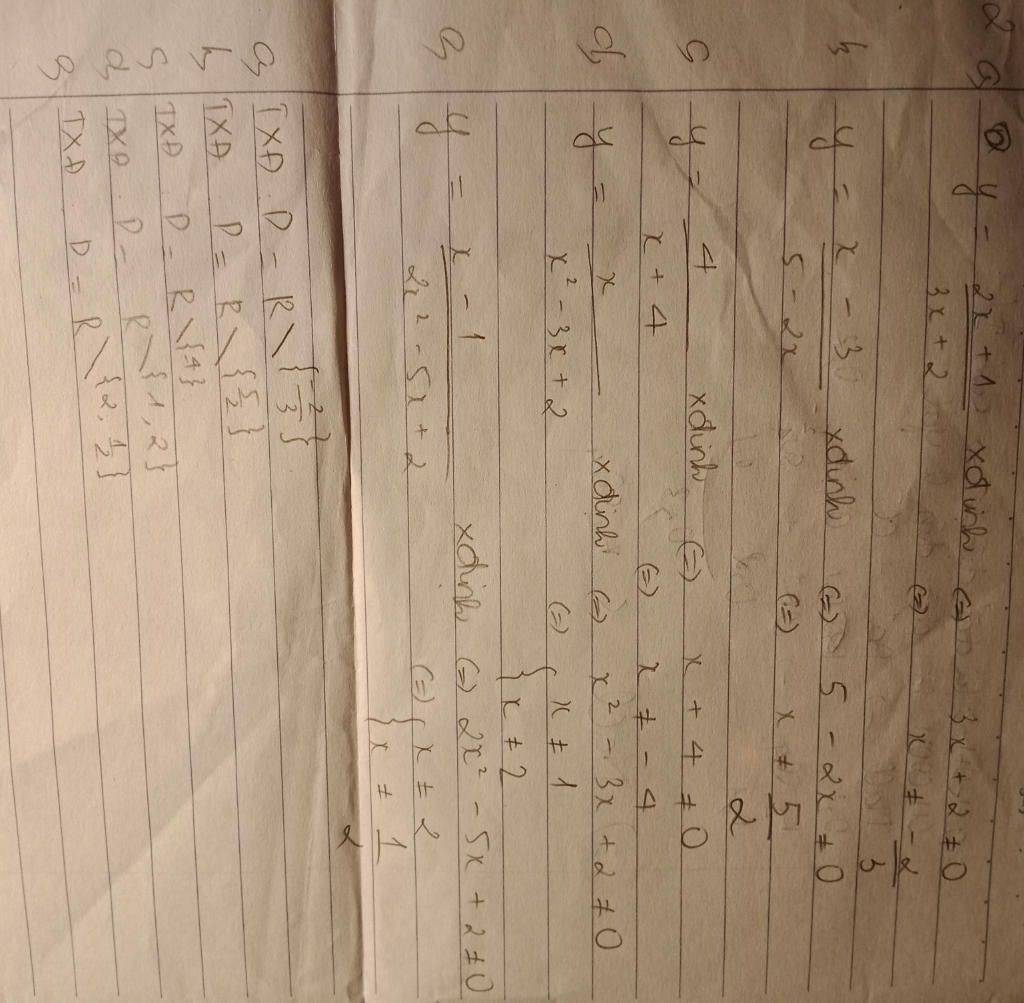 2 a y = 2x + 1 / 3x + 2 xđịnh (=) 3x + 2 ≠ 0
(=) x ≠ -2/3
b y = x - 3 / 5 - 2x xđịnh (=) 5 - 2x ≠ 0
(=) x ≠ 5/2
c y = 4 / x + 4 xđịnh (=) x + 4 ≠ 0
(=) x ≠ - 4
d y = x / x² - 3x + 2 xđịnh (=) x² - 3x + 2 ≠ 0
(=) { x ≠ 1
{ x ≠ 2
e y = x - 1 / 2x² - 5x + 2 xđịnh (=) 2x² - 5x + 2 ≠ 0
(=) { x ≠ 2
{ x ≠ 1/2
a TXĐ . D = R \ {-2/3}
b TXĐ D = R \ {5/2}
c TXĐ D = R \ {4}
d TXĐ . D = R \ {1, 2}
e TXĐ D = R \ {2, 1/2}